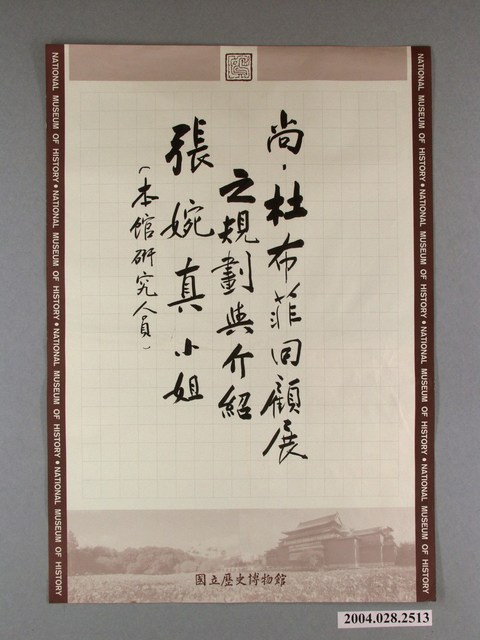 尚·杜布菲回顧展
之規劃與介紹
張婉真小姐
(本館研究人員)
NATIONAL MUSEUM OF HISTORY • NATIONAL MUSEUM OF HISTORY • NATIONAL MUSEUM OF HISTORY • NATIONAL MUSEUM OF HISTORY
NATIONAL MUSEUM OF HISTORY • NATIONAL MUSEUM OF HISTORY • NATIONAL MUSEUM OF HISTORY • NATIONAL MUSEUM OF HISTORY
國立歷史博物館
2004.028.2513